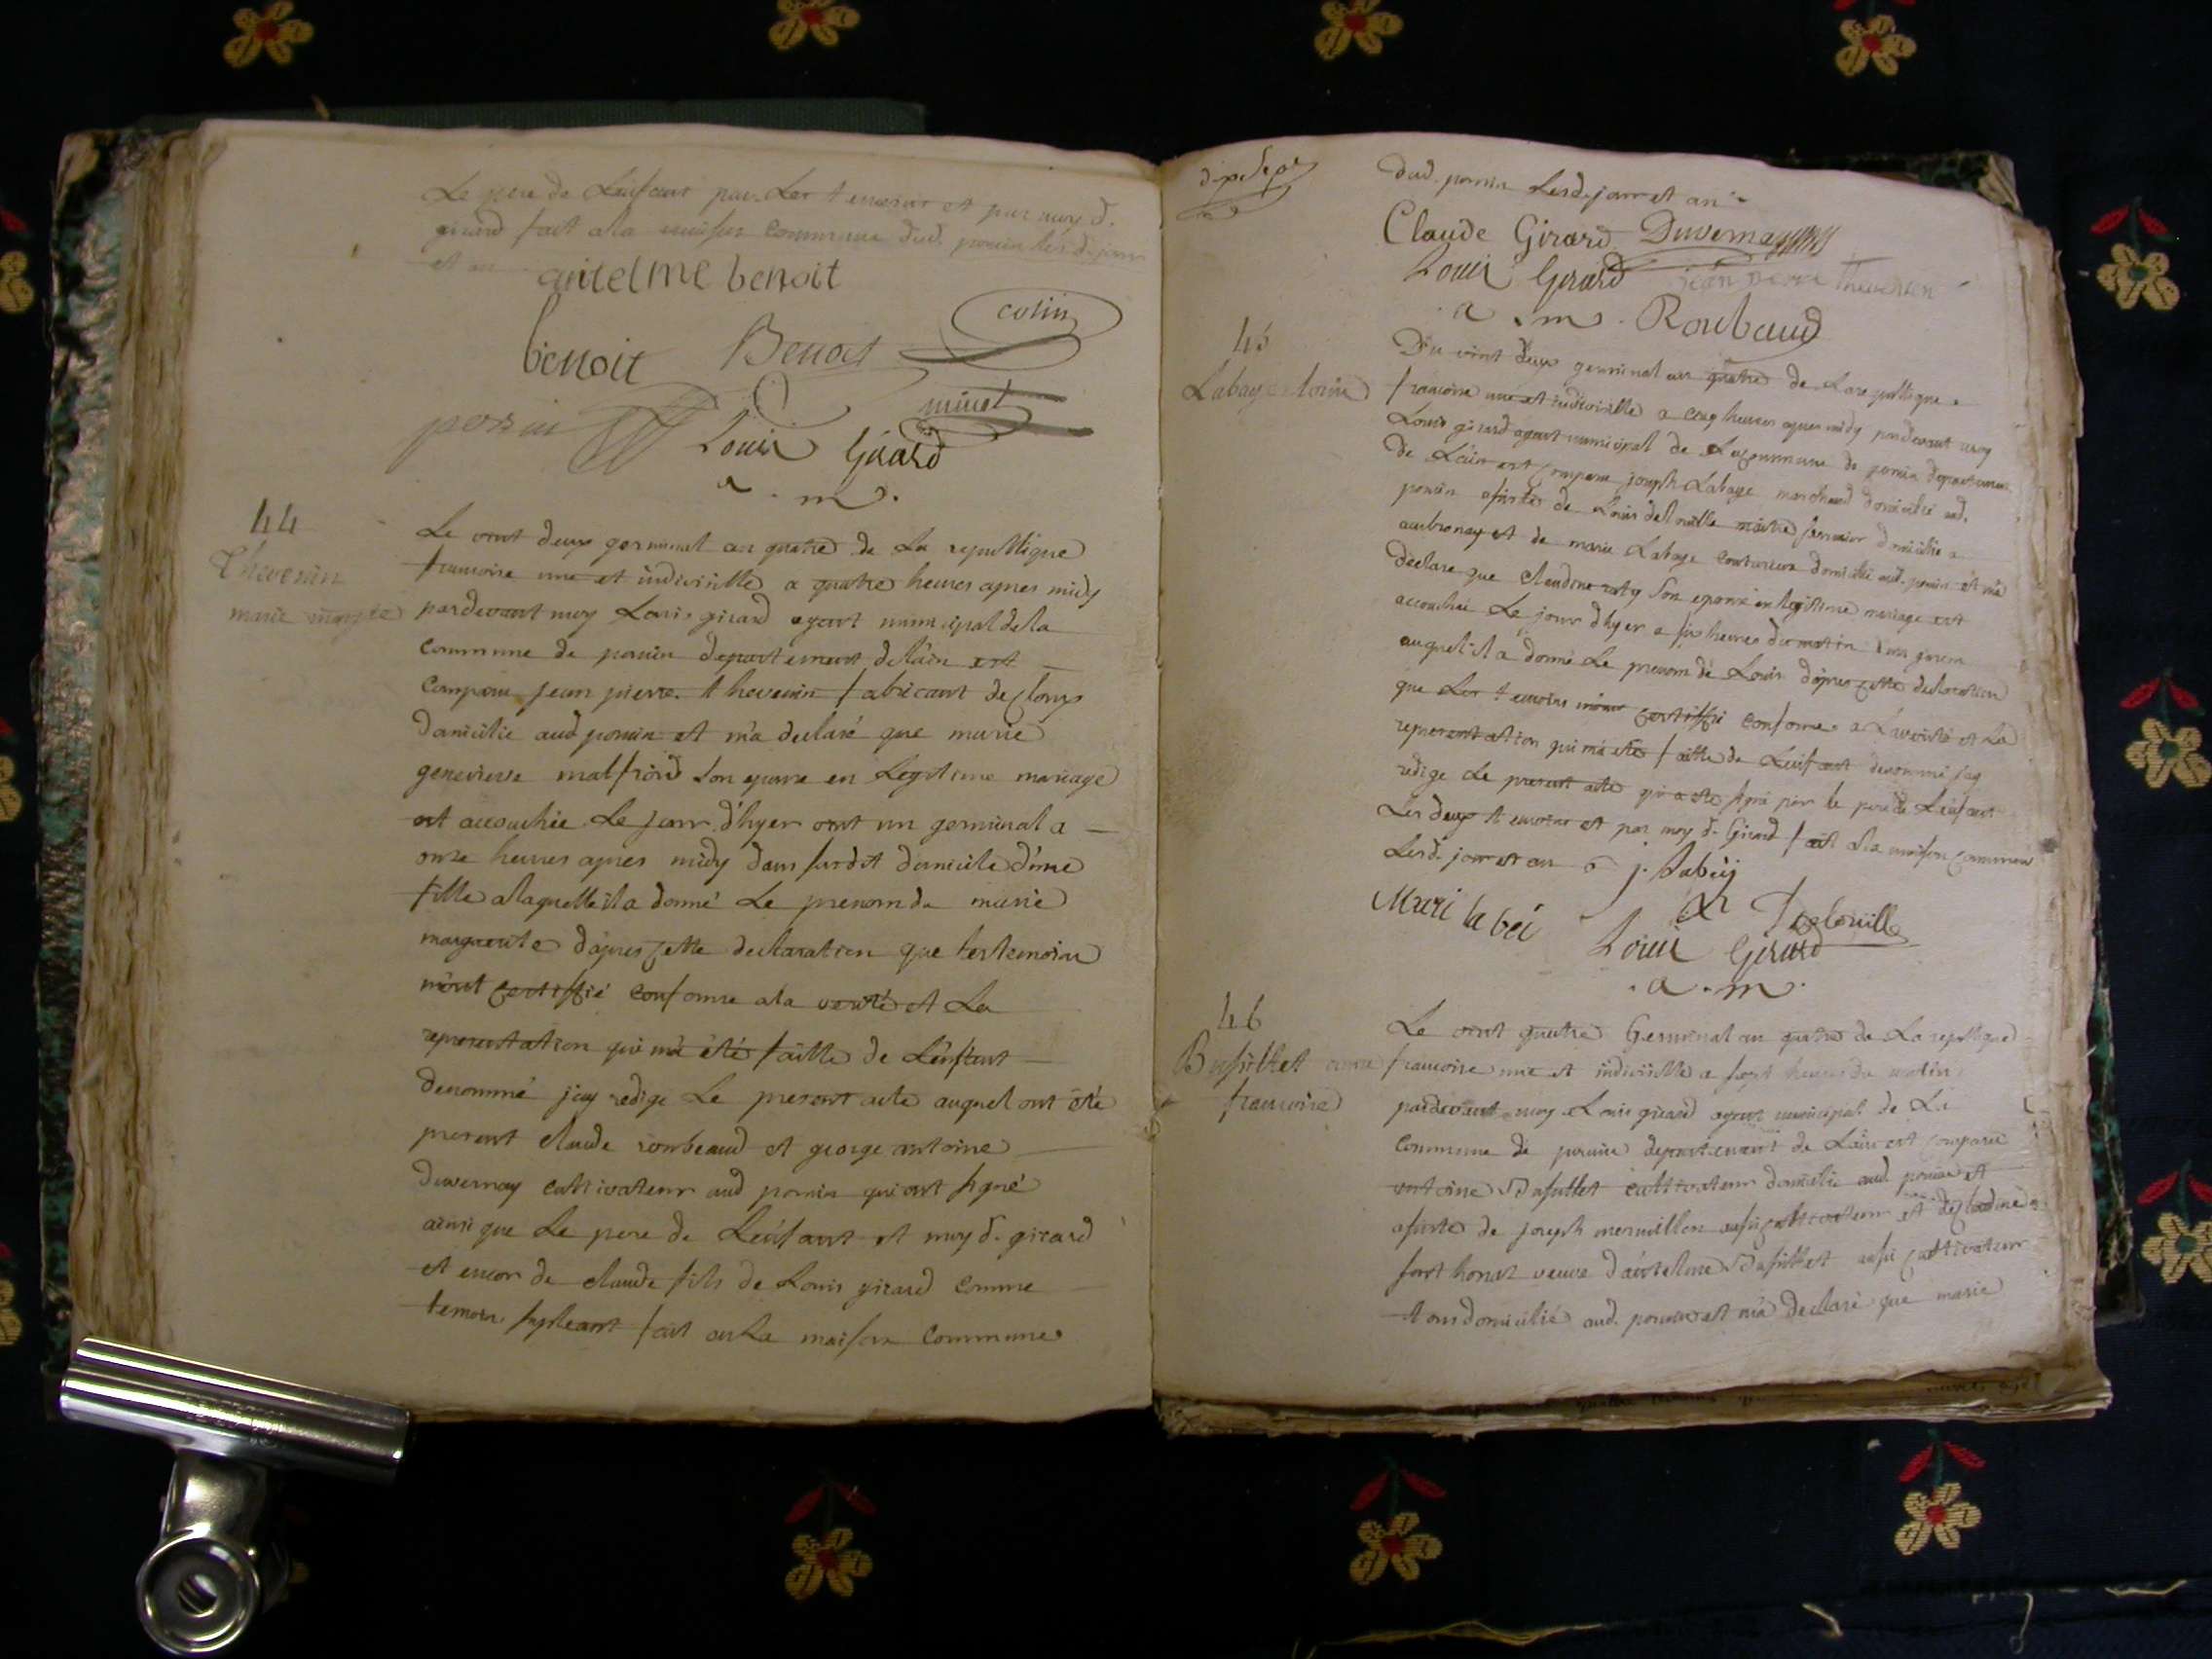 Le pere de Lenfant par Les temoins et par moy d.
girard fait ala maison Commune dud. poncin lesd. jour
et an
antelme benoit
colin
benoit Benoit
minet
poncin Louis Girard
a . m .
44
Thevenin
marie margte
Le vint deux germinal an quatre de La republique
francoise une et indivisible a quatre heures apres midy
pardevant moy Louis girard agent municipal de la
Commune de poncin departement delain est
Comparu jean pierre thevenin fabricant de cloux
domicilié aud poncin et m'a declaré que marie
genevieve malfroid son epouse en Legitime mariage
est accouchée Le jour d'hyer vint un germinal a
onze heures apres midy dans surdit domicile d'une
fille alaquelle il a donné Le prenom de marie
marguerite d'apres cette declaration que les temoins
m'ont certiffié conforme ala verité et La
representation qui m'a été faitte de Lenfant
denommé j'ay redigé Le present acte auquel ont été
present claude roubeaud et george antoine
Duvernay cultivateur aud poncin qui ont signé
ainsi que Le pere de Lenfant et moy d. girard
et encor de claude fils de Louis girard comme
temoin supleant fait en La maison Commune
dud. poncin Lesd. jour et an
Claude Girard Duvernay
Louis Girard jean pierre thevenin
a . m . Roubaud
45
Labaye Louis
Du vint deux germinal an quatre de La republique
francoise une et indivisible a cinq heures apres midy pardevant moy
Louis girard agent municipal de La commune de poncin departement
de Lain est comparu joseph Labaye marchand domicilié aud.
poncin assisté de Louis delouille maitre domicilié a
ambronay et de marie Labaye couturiere domicilié aud. poncin et m'a
declare que claudine son epouse en legitime mariage est
accouchée Le jour d'hyer a six heures du matin d'un garcon
auquel il a donné Le prenom de Louis d'apres cette declaration
que Les temoins m'ont certiffié conforme a La verité et La
representation qui m'a été faitte de Lenfant denommé j'ay
redigé Le present acte qui a été signé par le pere de Lenfant
Les deux temoins et par moy d. Girard fait ala maison commune
Lesd. jour et an j. Labéy
Mari la béi Delouille
Louis Girard
. a . m .
46
Busillet anne
francoise
Le vint quatre Germinal an quatre de La republique
francoise une et indivisible a sept heures du matin
pardevant moy Louis girard agent municipal de La
Commune de poncin departement de Lain est comparu
antoine Busillet cultivateur domicilié aud. poncin et
assisté de joseph mermillon aussi cultivateur et de claudine
fort honat veuve d'antelme Busillet aussi cultivateur
tous domicilié aud. poncin et m'a declaré que marie